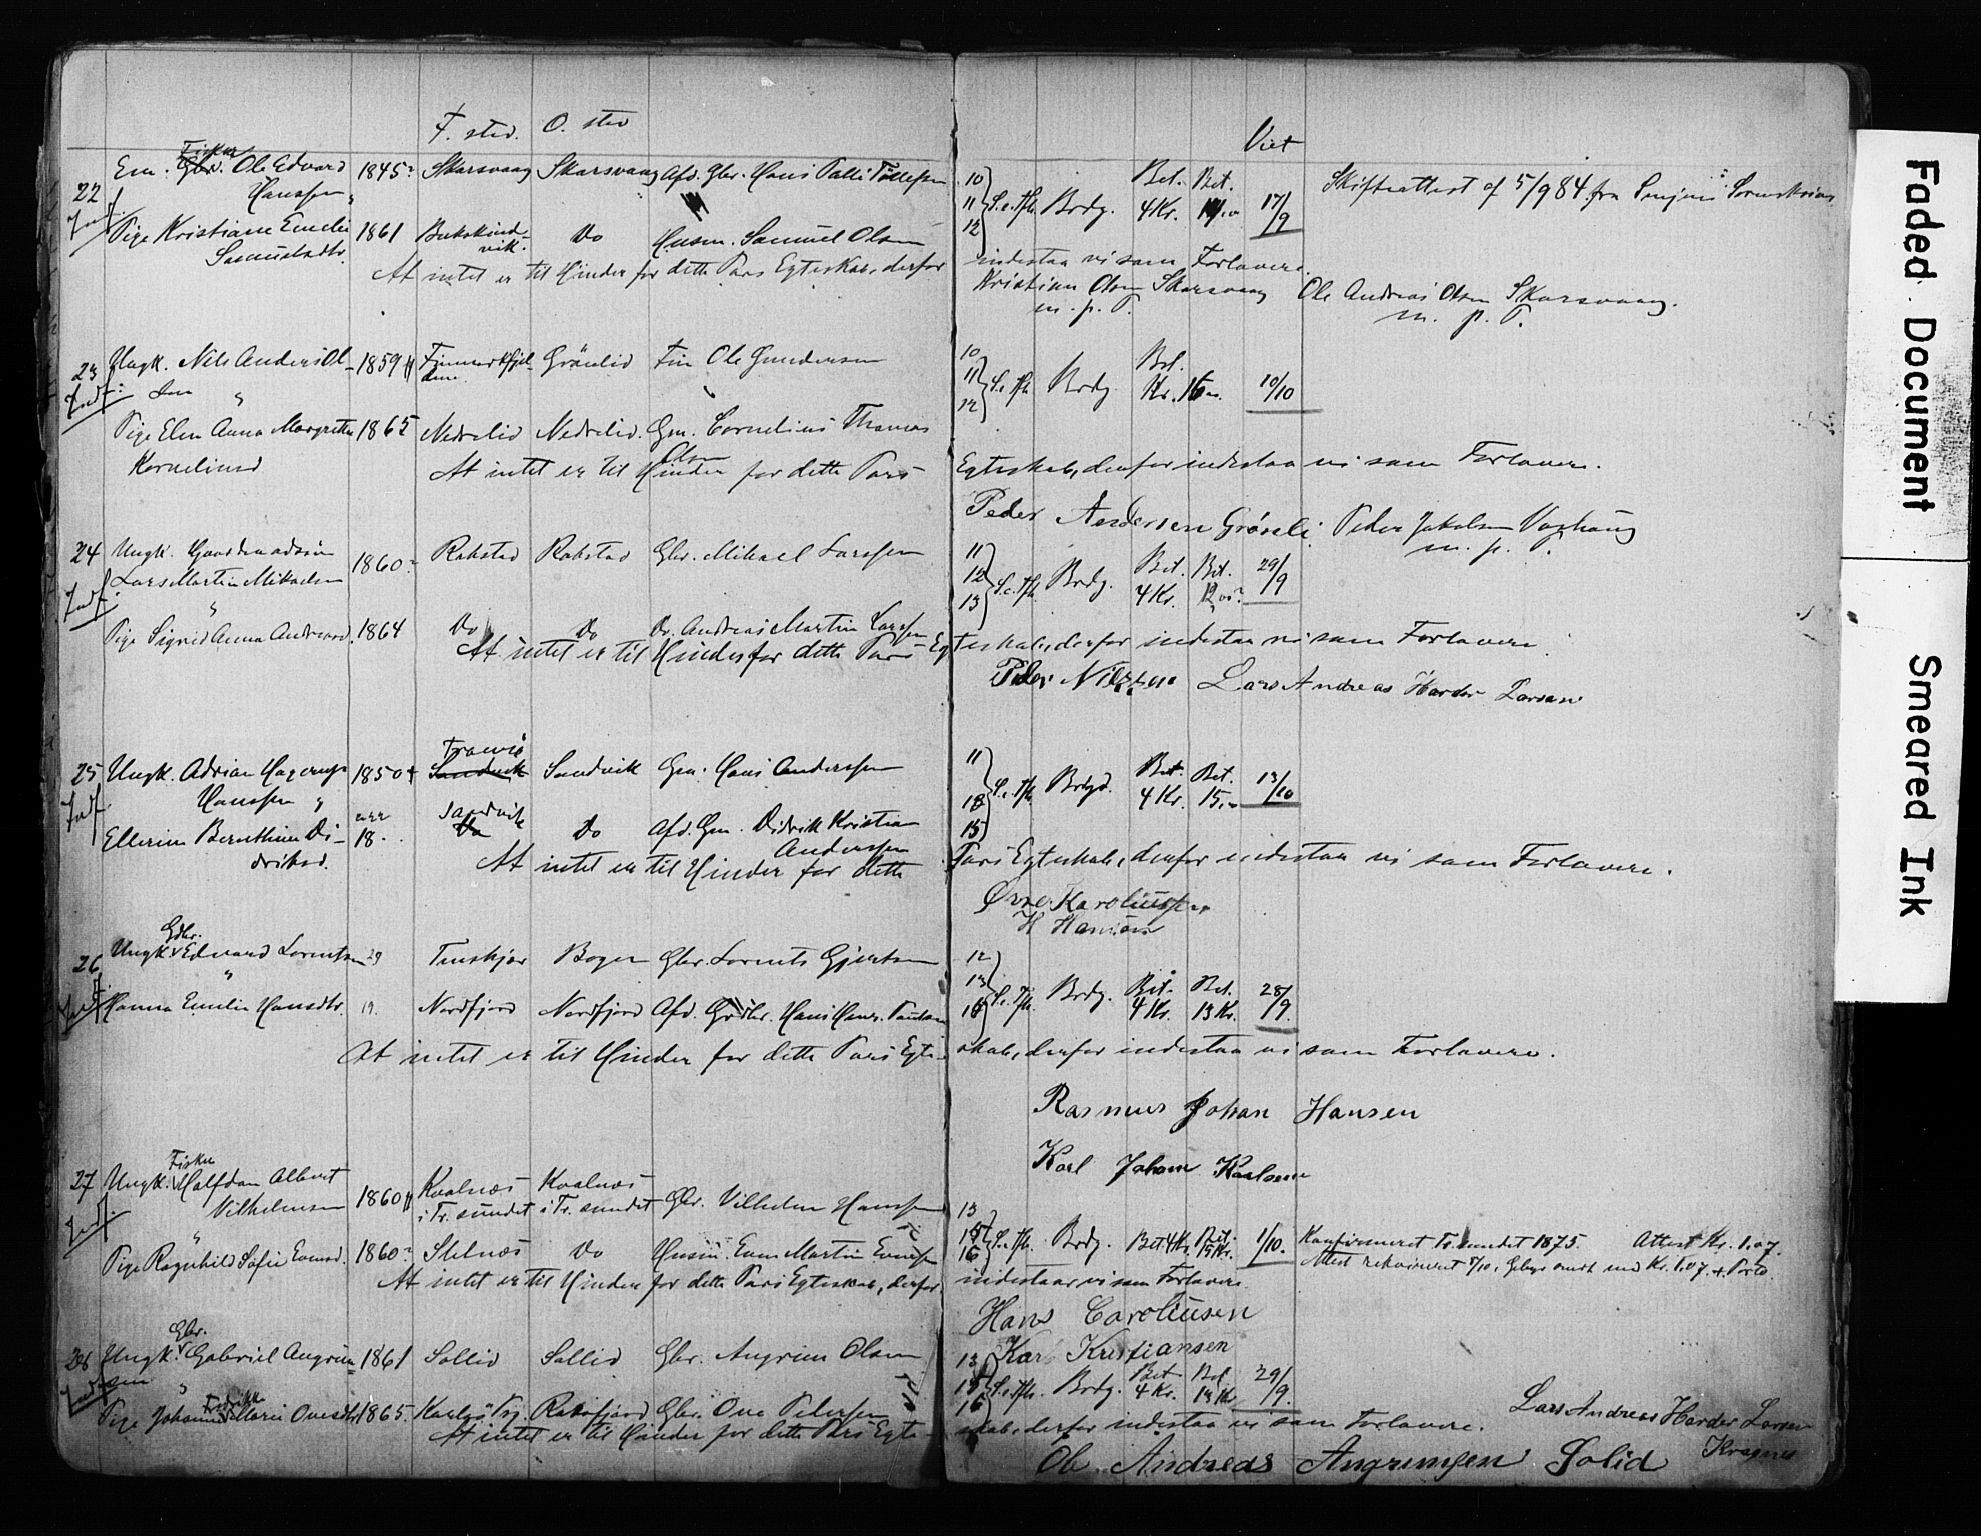 F. sted. O. sted
Viet
22 Em. Gbr. Fisker Ole Edvard 1845 Skarsvaag Skarsvaag Afd. Gbr. Hans Palli Tollefsen
Hanssen
Indf.
Pige Kristiane Emelie 1861 Bukskind- Do Husm. Samuel Olsen
Samuelsdtr. vik.
At intet er til Hinder for dette Pars Egteskab, derfor
10 Bet. Bet.
11 S. e. Tfh. Brdg. 4 Kr. 17/9 Skifteattest af 5/9 84 fra Senjens Sorenskriver
12
indestaa vi som Forlovere.
Kristian Olsen Skarsvaag Ole Andreas Olsen Skarsvaag.
m. p. P. m. p. P.
23 Ungk. Nils Anders Ol- 1859 Finmarkfjel- Grönlid Fin Ole Gundersen
sen dene
Indf.
Pige Elen Anna Margrethe 1865 Nedrelid Nedrelid. Gm. Cornelius Thomas
Korneliusd Olsen
At intet er til Hinder for dette Pars
10 Bet.
11 S. e. Tfh. Brdg. Kr. 16 10/10
12
Egteskab, derfor indestaa vi som Forlovere.
Peder Andersen Grönli Peder Jakobsen
m. p. P.
24 Ungk. Lars Martin Mikaelsen 1860 Rakstad Rakstad Gbr. Mikael Larssen
Indf.
Pige Sigrid Anna Andreasd. 1864 Do Do Do. Andreas Martin Larssen
At intet er til Hinder for dette Pars Eg-
11 Bet. Bet. 29/9
12 S. e. Tfh. Brdg. 4 Kr. 12
13
teskab, derfor indestaa vi som Forlovere.
Peder Nilssen Lars Andreas Harder Larsen
25 Ungk. Adrian Hagerup 1850 Sandvik Sandvik Gm. Hans Anderssen
Hanssen
Indf.
Ellerine Bernthine Di- 18 Sandvik Do Do Afd. Gm. Didrik Kristian
driksd. Anderssen
At intet er til Hinder for dette
11 Bet. Bet. 13/10
S. e. Tfh. Brdg. 4 Kr. 15
15
Pars Egteskab, derfor indestaa vi som Forlovere.
Karoliussen
H Hansen
26 Ungk. Gbr. Edvard Lorentsen 29 Bogen Gbr. Lorents Gjertsen
Indf.
Hanna Emilie Hansdtr. 19. Nordfjord Nordfjord Afd. Gbr. Hans Paulsen
At intet er til Hinder for dette Pars Egte-
12
13 S. e. Tfh. Brdg. Bet. Bet. 28/9.
4 Kr. 13 Kr.
skab, derfor indestaa vi som Forlovere.
Rasmus Johan Hansen
Karl Johan Karlsen
27 Ungk. Fisker Halfdan Albert 1860 Kvalnæs Kvalnæs
Vilhelmsen i Tr. sundet i Tr. sundet Gbr. Vilhelm Hanssen
Indf.
Pige Ragnhild Sofie Evensd. 1860 Stelnæs Do Husm. Even Martin Evensen
At intet er til Hinder for dette Pars Egteskab, derfor
13
S. e. Tfh. Brdg. Bet. 4 Kr. Bet. 15 Kr. 1/10. Konfirmeret Tr. sundet 1875. Attest Kr. 1.07.
16 Attest rekvireret Kr. 1.07 + Porto.
indestaar vi som Forlovere.
Hans Caroliusen
Karl Kristiansen
28 Ungk. Gbr. Gabriel Angrim- 1861 Sollid Sollid Gbr. Angrim Olsen
sen
Indf.
Pige Johanna Fredrikke Marie Ovesdtr 1865. Rakefjord Gbr. Ove Pedersen
At intet er til Hinder for dette Pars Egte-
13 Bet. Bet. 29/9.
S. e. Tfh. Brdg. 4 Kr. 14 Kr
16
skab, derfor indestaa vi som Forlovere. Lars Andreas Harder Larsen
Kragnes
Ole Andreas Angrimsen Solid
Faded Document
Smeared Ink